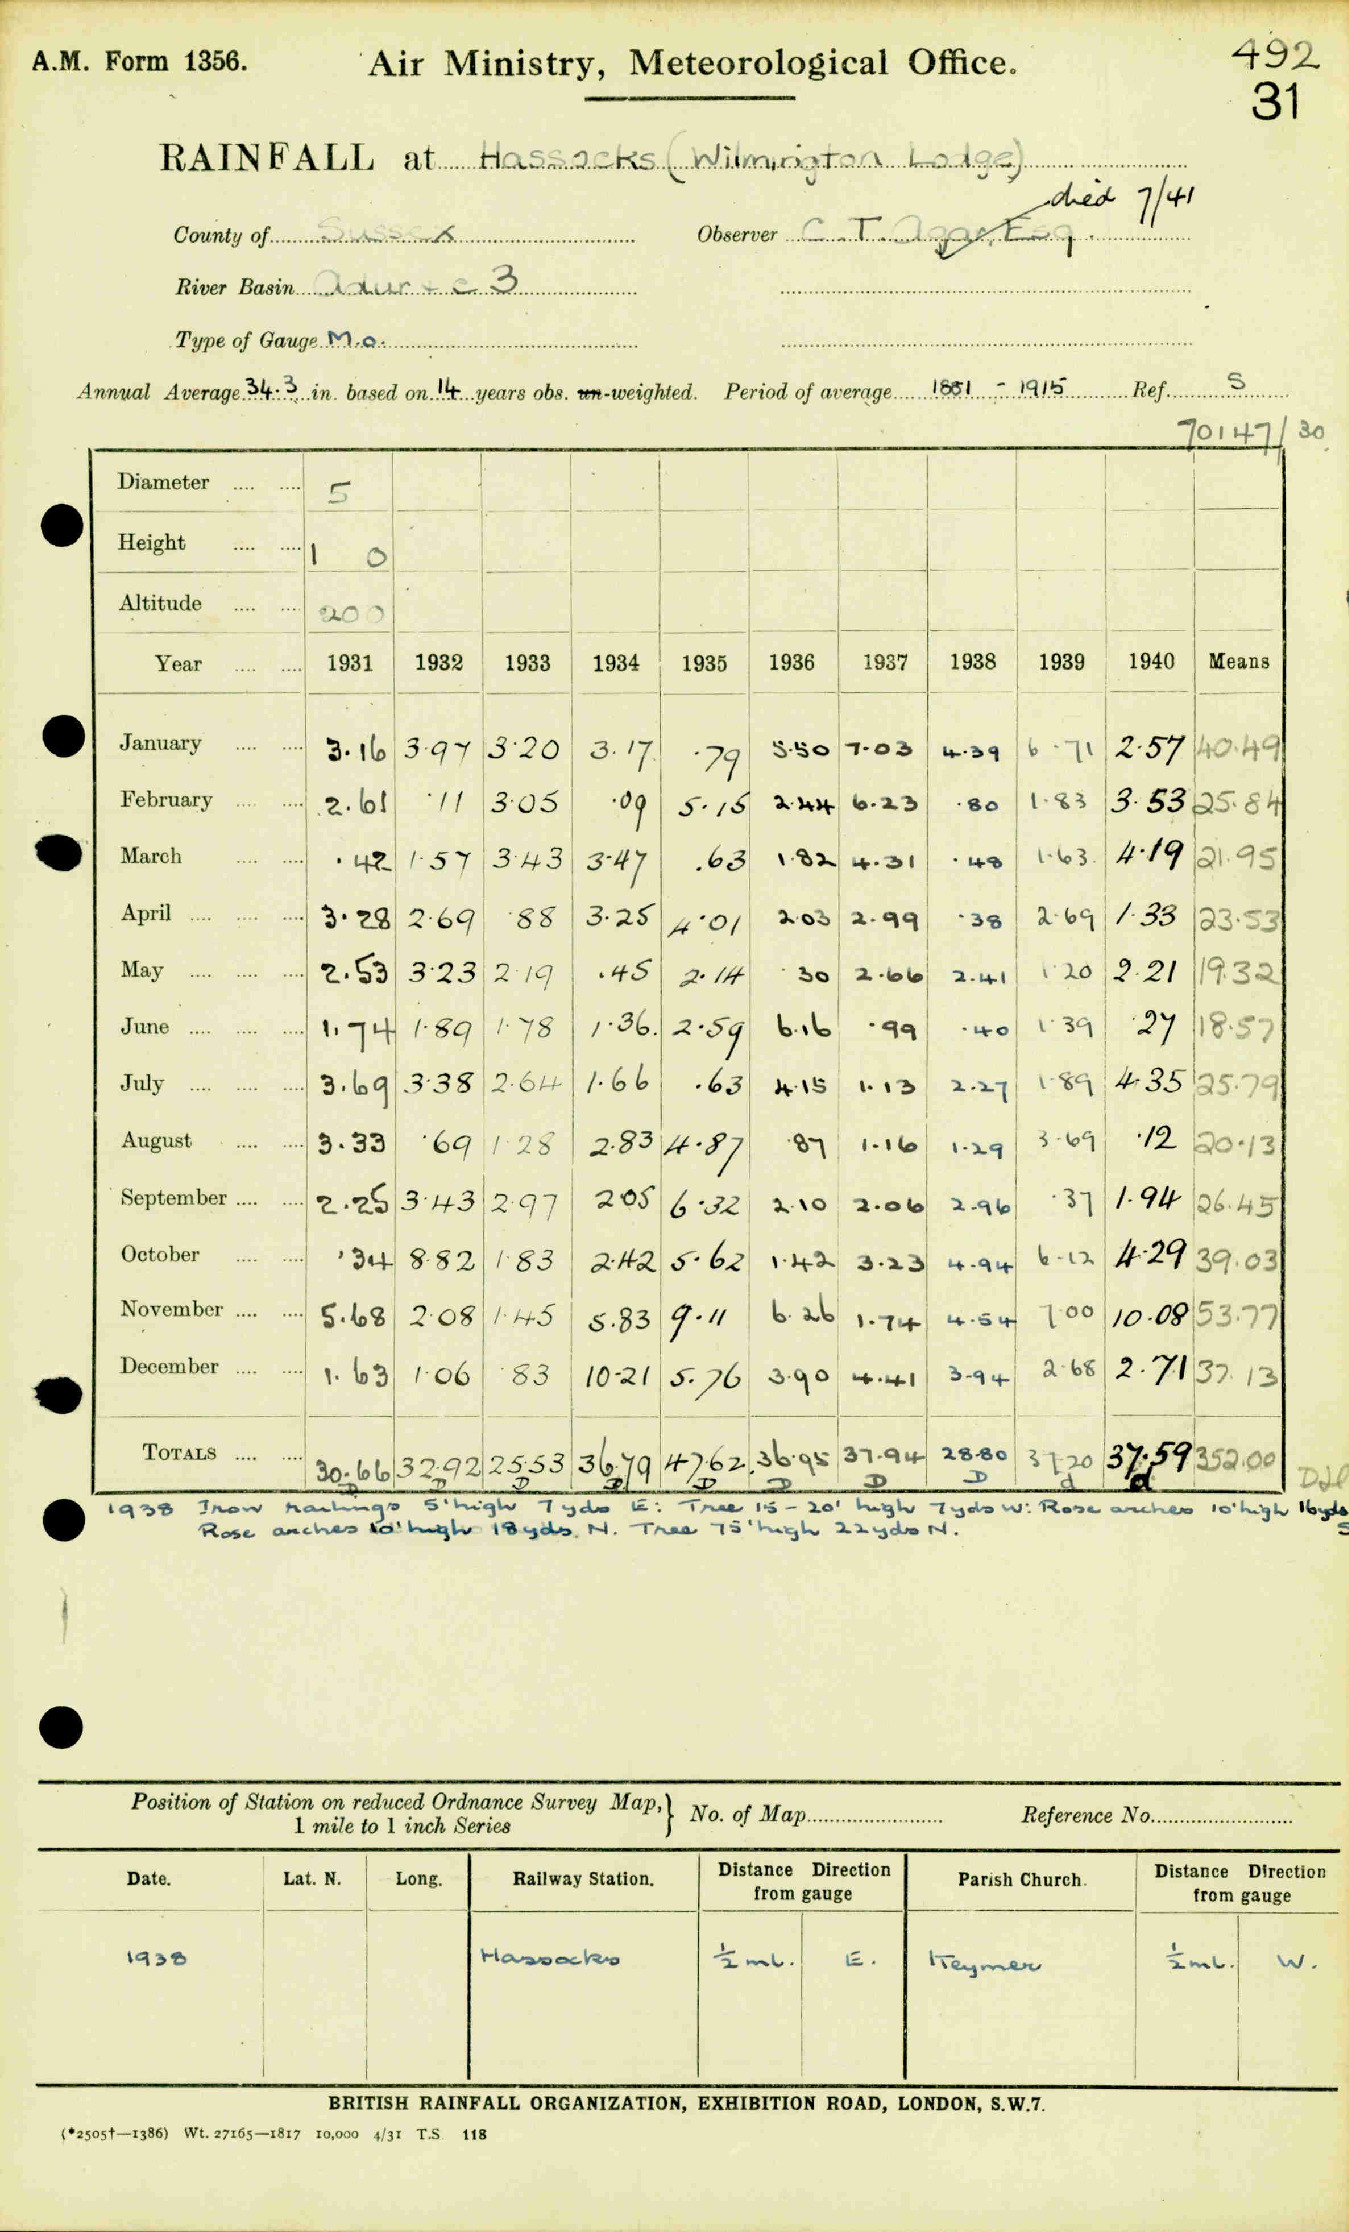 A.M. Form 1356. Air Ministry, Meteorological Office. 492
31
RAINFALL at Hassocks (Wilmington Lodge)
died 7/41
County of Sussex Observer C. T. Agar, Esq.
River Basin Adur &c 3
Type of Gauge M.O.
Annual Average 34.3 in. based on 14 years obs. un-weighted. Period of average 1881 - 1915 Ref. S
70147/30
Diameter .... .... 5
Height .... .... 1 0
Altitude .... .... 200
Year .... .... 1931 1932 1933 1934 1935 1936 1937 1938 1939 1940 Means
January .... .... 3.16 3.97 3.20 3.17 .79 5.50 7.03 4.39 6.71 2.57 40.49
February .... .... 2.61 .11 3.05 .09 5.15 2.44 6.23 .80 1.83 3.53 25.84
March .... .... .42 1.57 3.43 3.47 .63 1.82 4.31 .48 1.63 4.19 21.95
April .... .... .... 3.28 2.69 .88 3.25 4.01 2.03 2.99 .38 2.69 1.33 23.53
May .... .... .... 2.53 3.23 2.19 .45 2.14 .30 2.66 2.41 1.20 2.21 19.32
June .... .... .... 1.74 1.89 1.78 1.36 2.59 6.16 .99 .40 1.39 .27 18.57
July .... .... .... 3.69 3.38 2.64 1.66 .63 4.15 1.13 2.27 1.89 4.35 25.79
August .... .... 3.33 .69 1.28 2.83 4.87 .87 1.16 1.29 3.69 .12 20.13
September .... .... 2.25 3.43 2.97 2.05 6.32 2.10 2.06 2.96 .37 1.94 26.45
October .... .... .34 8.82 1.83 2.42 5.62 1.42 3.23 4.94 6.12 4.29 39.03
November .... .... 5.68 2.08 1.45 5.83 9.11 6.26 1.74 4.54 7.00 10.08 53.77
December .... .... 1.63 1.06 .83 10.21 5.76 3.90 4.41 3.94 2.68 2.71 37.13
TOTALS .... .... 30.66 32.92 25.53 36.79 47.62 36.95 37.94 28.80 37.20 37.59 352.00
D D D D D D D D d d
1938 Iron railings 5' high 7 yds E: Tree 15 - 20' high 7 yds W: Rose arches 10' high 16 yds S
Rose arches 10' high 18 yds. N. Tree 75' high 22 yds N.
Position of Station on reduced Ordnance Survey Map, } No. of Map Reference No.
1 mile to 1 inch Series
Date. Lat. N. Long. Railway Station. Distance Direction from gauge Parish Church. Distance Direction from gauge
1938 Hassocks ½ ml. E. Keymer ½ ml. W.
BRITISH RAINFALL ORGANIZATION, EXHIBITION ROAD, LONDON, S.W.7.
(*2505†—1386) Wt. 27165—1817 10,000 4/31 T.S. 118